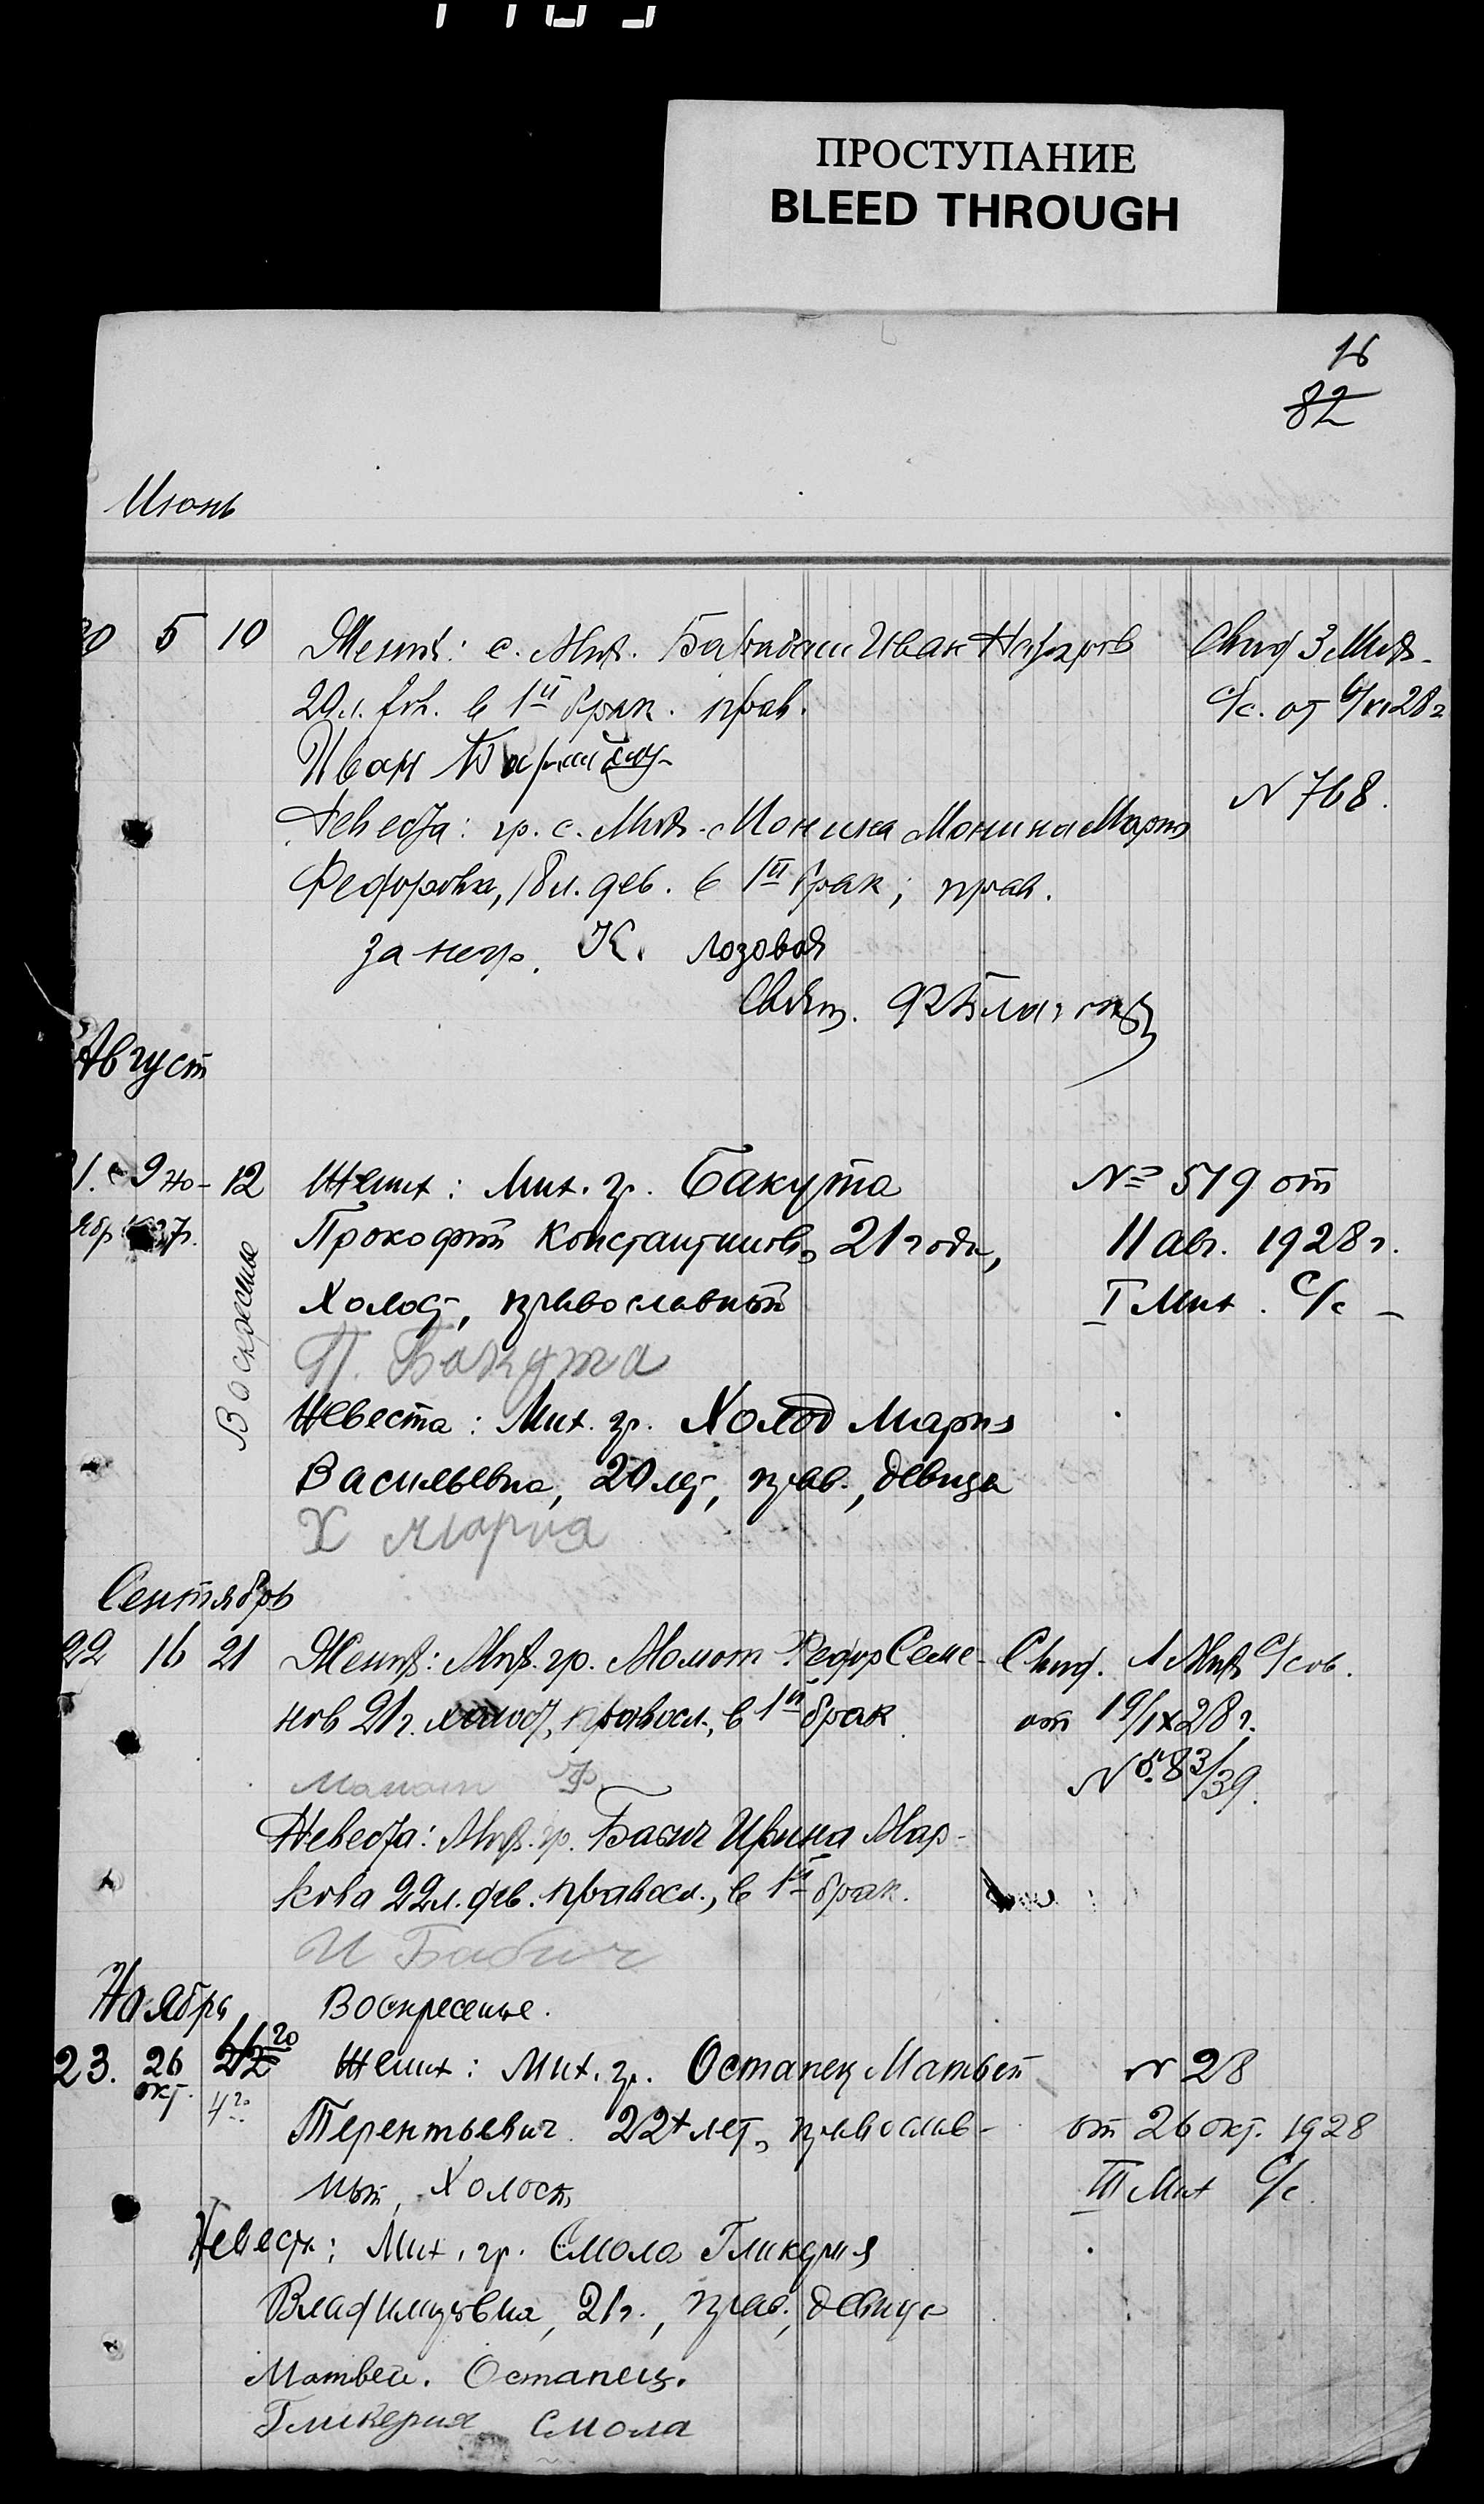 ПРОСТУПАНИЕ
BLEED THROUGH
16
82
Июнь
5 10 Жених: с. Мих. Иван
20 л. в 1й брак. прав.
Иван
Свид 3 Мих.
с/с. от 6/VI 28 г
N 768.
Невеста: гр. с. Мих. Монина Мария
Федоровна, 18 л. дев. в 1й брак; прав.
за негр. К. Лозовой
Свящ.
Август
21. 9 но- 12 Жених: Мих. гр. Бакута
ябр 1927г.
Воскресение
Прокофий Константинов, 21 года,
Холост, православный
№ 519 от
11 авг. 1928 г.
I Мих. С/с
П. Бакута
Невеста: Мих. гр. Холод Мария
Васильевна, 20 лет, прав., девица
Х Мария
Сентябрь
22 16 21 Жених: Мих. гр. Момот Федор Семе-
нов 21 г. холост, правосл., в 1й брак
Свид. 1 Мих С/сов.
от 19/IX 28 г.
N 583/39.
Момот Ф.
Невеста: Мих. гр. Бабич Ирина Мар-
кова 22 л. дев. правосл., в 1й брак.
И Бабич
Ноябрь Воскресенье.
23. 26 окт. 4го Жених: Мих. гр. Остапец Матвей
Терентьевич 22 лет, православ-
ный, Холост
N 28
от 26 окт. 1928
III Мих С/с.
Невеста: Мих. гр. Смола Гликерия
Владимировна, 21 г., прав., девица
Матвей. Остапец.
Гликерия Смола